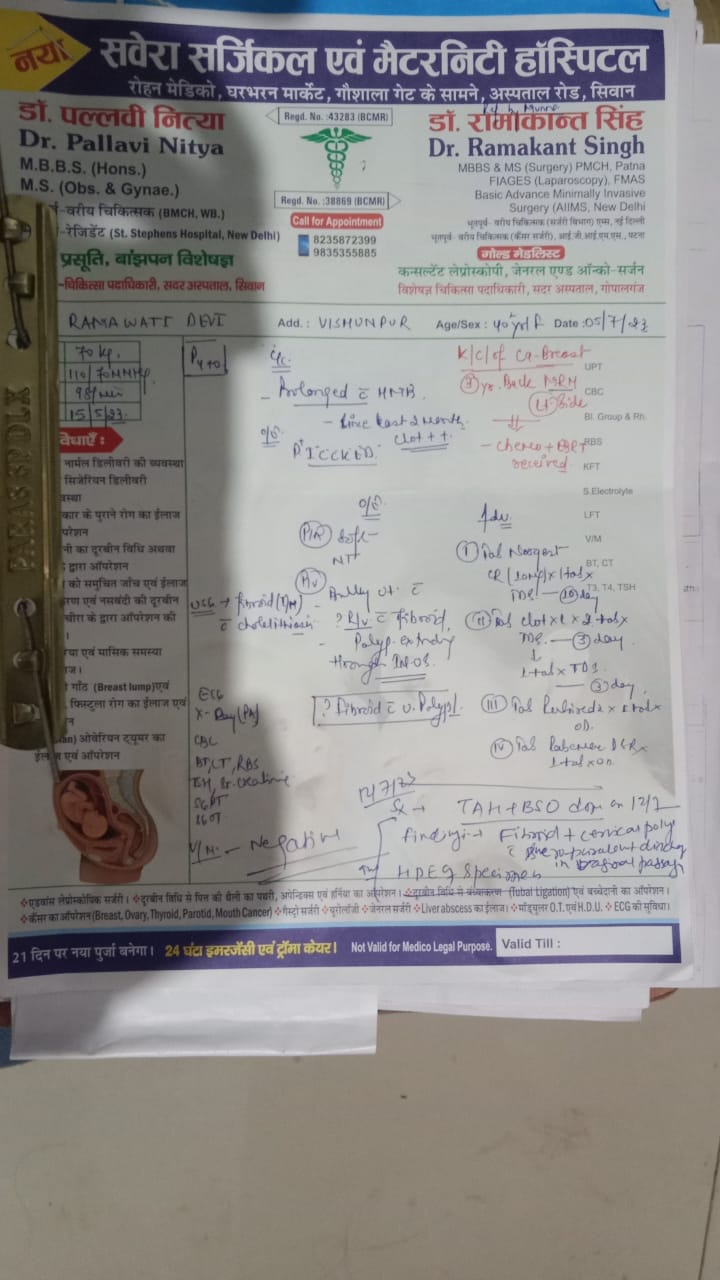 नया सवेरा सर्जिकल एवं मैटरनिटी हॉस्पिटल
रोहन मेडिको, घरभरन मार्केट, गौशाला गेट के सामने, अस्पताल रोड, सिवान
डॉ. पल्लवी नित्या
Dr. Pallavi Nitya
M.B.B.S. (Hons.)
M.S. (Obs. & Gynae.)
-वरीय चिकित्सक (BMCH, WB.)
-रेजिडेंट (St. Stephens Hospital, New Delhi)
प्रसूति, बांझपन विशेषज्ञ
-चिकित्सा पदाधिकारी, सदर अस्पताल, सिवान
Regd. No. :43283 (BCMR)
Regd. No. :38869 (BCMR)
Call for Appointment
8235872399
9835355885
डॉ. रामाकान्त सिंह
Dr. Ramakant Singh
MBBS & MS (Surgery) PMCH, Patna
FIAGES (Laparoscopy), FMAS
Basic Advance Minimally Invasive
Surgery (AIIMS, New Delhi
भूतपूर्व- वरीय चिकित्सक (सर्जरी विभाग) एम्स, नई दिल्ली
भूतपूर्व- वरीय चिकित्सक (कैंसर सर्जरी), आई.जी.आई.एम.एस., पटना
गोल्ड मेडलिस्ट
कन्सल्टेंट लेप्रोस्कोपी, जेनरल एण्ड ऑन्को-सर्जन
विशेषज्ञ चिकित्सा पदाधिकारी, सदर अस्पताल, गोपालगंज
RAMAWATI DEVI Add.: VISHUNPUR Age/Sex : 40 yr/F Date :05/7/23
70 kg.
110/70 MMHg
98/min
15/5/23.
P4+0
C/C
- Prolonged c HMB.
- Since last 2 month
clot ++.
O/E
PICCKED.
K/C/O Ca-Breast
3 yr. Back MRM
(L) Side
- Chemo +
received
UPT
CBC
Bl. Group & Rh.
RBS
KFT
S.Electrolyte
LFT
V/M
BT, CT
T3, T4, TSH
विधाएँ :
नार्मल डिलीवरी की व्यवस्था
सिजेरियन डिलीवरी
कार के पुराने रोग का ईलाज
नी का दूरबीन विधि अथवा
द्वारा ऑपरेशन
को समुचित जाँच एवं ईलाज
रण एवं नसबंदी की दूरबीन
चीरा के द्वारा ऑपरेशन की
या एवं मासिक समस्या
गाँठ (Breast lump)एवं
फिस्टुला रोग का ईलाज एवं
ओवेरियन ट्यूमर का
ईलाज एवं ऑपरेशन
O/E
P/A soft
NT
P/V
- Bulky ut. c
? R/V c fibroid,
- Polyp extruding
through IN-OS.
USG → fibroid (I/M)
c cholelithiasis
? Fibroid c Polyp
Adv
I Tab
CR
TDS — 10 day
II Tab clot
TDS — 3 day
↓
1 tab x TDS
— 3 day
III Tab
OD.
IV Tab
1 tab x OD
ECG
X-Ray (PA)
CBC
BT, CT, RBS
TSH, Sr. Creatinine
SGPT
SGOT
V/M. - Negative
14/7/23
Sx → TAH + BSO done on 12/7
Findings → Fibroid + cervical polyp
c purulent discharge
in vaginal passage
HPE of Specimen
❖एडवांस लेप्रोस्कोपिक सर्जरी। ❖दूरबीन विधि से पित्त की थैली का पथरी, अपेन्डिक्स एवं हर्निया का ऑपरेशन। ❖दूरबीन विधि से बंध्याकरण (Tubal Ligation) एवं बच्चेदानी का ऑपरेशन।
❖कैंसर का ऑपरेशन (Breast, Ovary, Thyroid, Parotid, Mouth Cancer) ❖गैस्ट्रो सर्जरी ❖यूरोलॉजी ❖जेनरल सर्जरी ❖Liver abscess का ईलाज। ❖मॉड्युलर O.T. एवं H.D.U. ❖ ECG की सुविधा।
21 दिन पर नया पुर्जा बनेगा। 24 घंटा इमरजेंसी एवं ट्रॉमा केयर। Not Valid for Medico Legal Purpose. Valid Till :
PARAS SP DLX